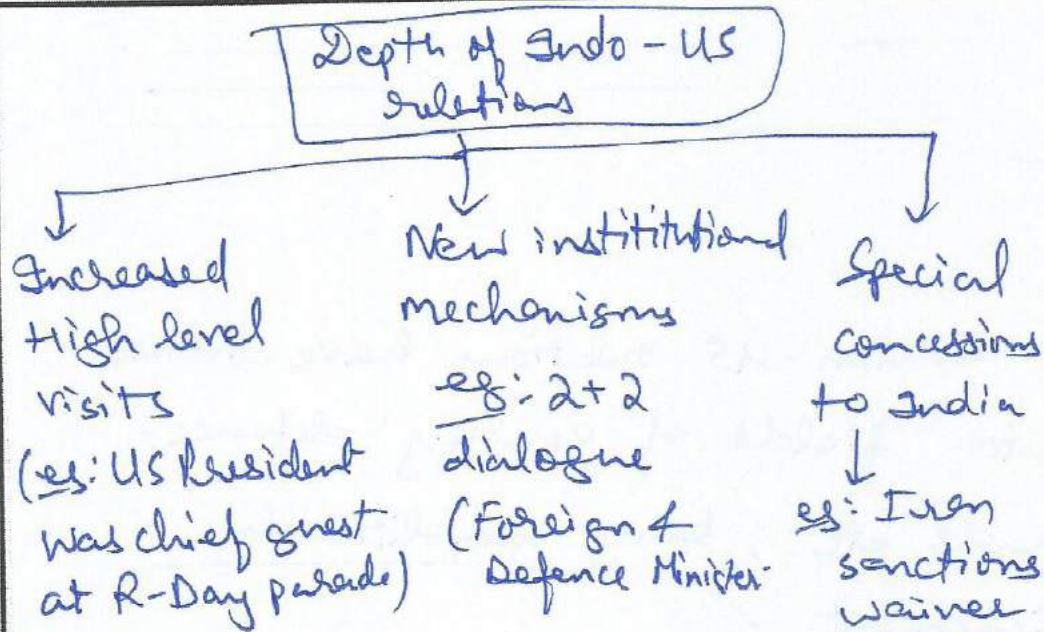 Depth of Indo - US
relations
Increased
High level
visits
(eg: US President
was chief guest
at R-Day parade)
New instititutional
mechanisms
eg:- 2+2
dialogue
(Foreign &
Defence Minister
Special
concessions
to India
eg: Iran
sanctions
waiver